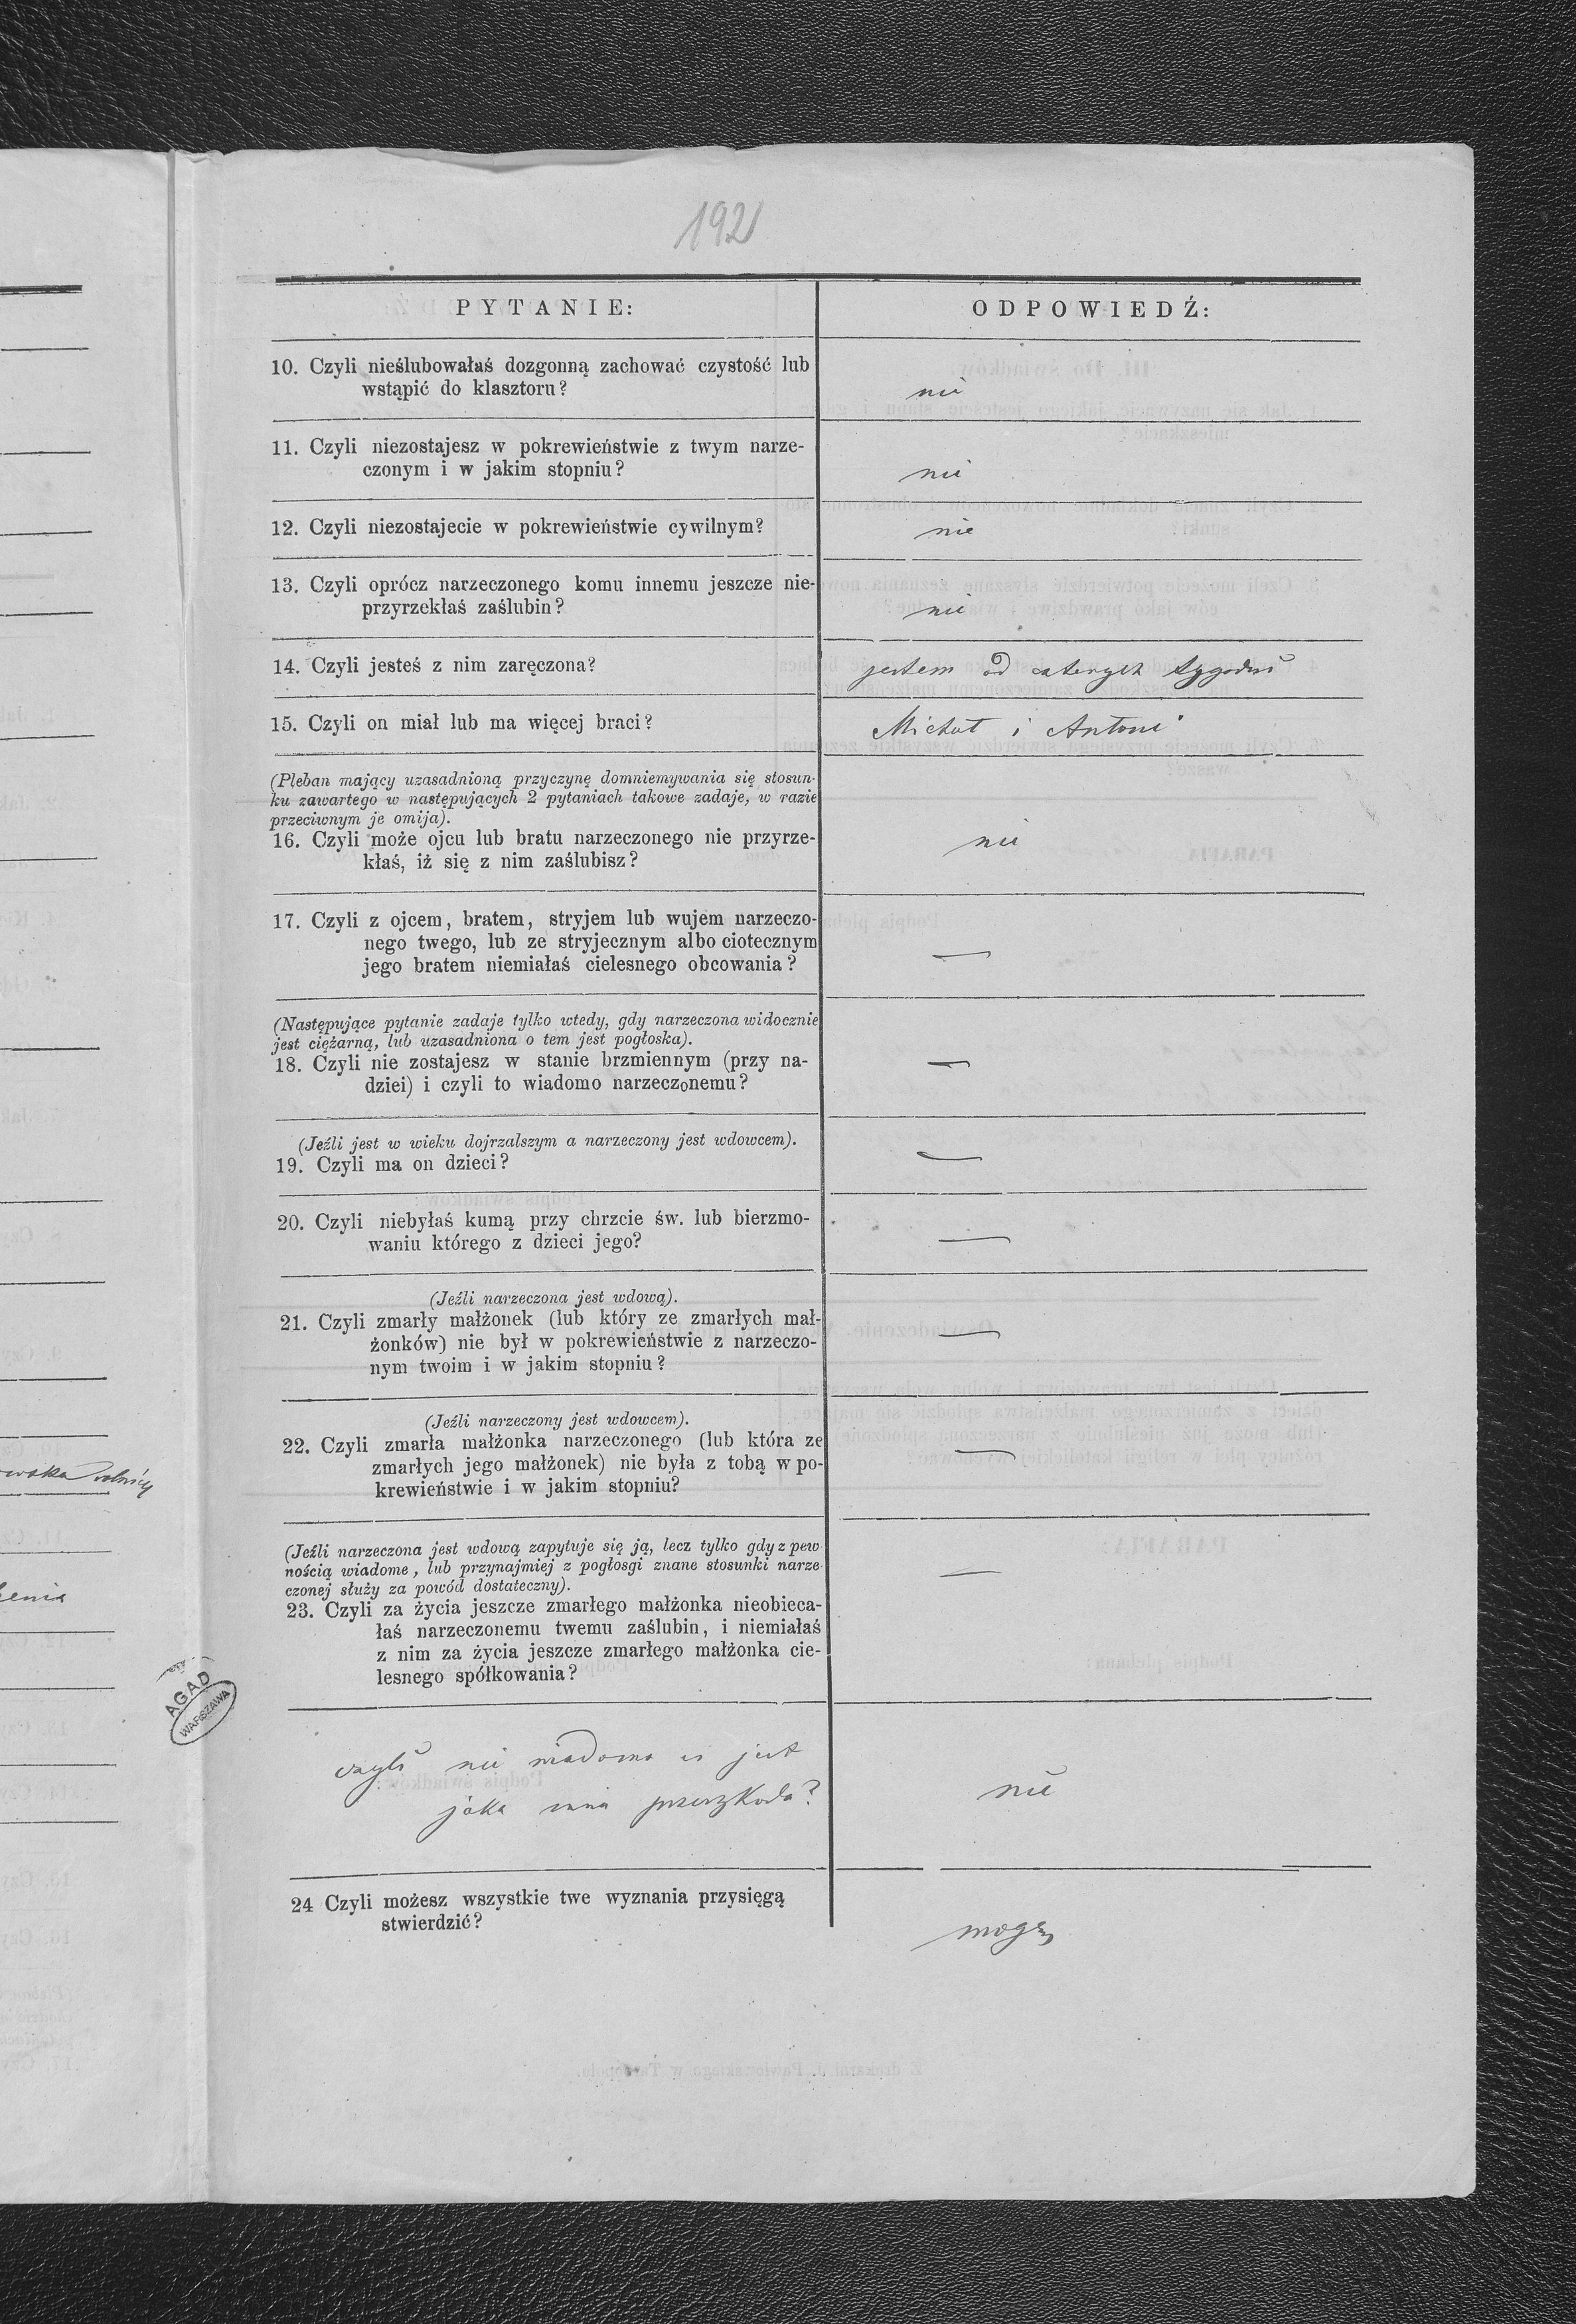 192
PYTANIE:
ODPOWIEDŹ:
10. Czyli nieślubowałaś dozgonną zachować czystość lub
wstąpić do klasztoru?
nie
11. Czyli niezostajesz w pokrewieństwie z twym narze-
czonym i w jakim stopniu?
nie
12. Czyli niezostajecie w pokrewieństwie cywilnym?
nie
13. Czyli oprócz narzeczonego komu innemu jeszcze nie-
przyrzekłaś zaślubin?
nie
14. Czyli jesteś z nim zaręczona?
jestem od czterych tygodni
15. Czyli on miał lub ma więcej braci?
Michał i Antoni
(Pleban mający uzasadnioną przyczynę domniemywania się stosun-
ku zawartego w następujących 2 pytaniach takowe zadaje, w razie
przeciwnym je omija).
16. Czyli może ojcu lub bratu narzeczonego nie przyrze-
kłaś, iż się z nim zaślubisz?
nie
17. Czyli z ojcem, bratem, stryjem lub wujem narzeczo-
nego twego, lub ze stryjecznym albo ciotecznym
jego bratem niemiałaś cielesnego obcowania?
—
(Następujące pytanie zadaje tylko wtedy, gdy narzeczona widocznie
jest ciężarną, lub uzasadniona o tem jest pogłoska).
18. Czyli nie zostajesz w stanie brzmiennym (przy na-
dziei) i czyli to wiadomo narzeczonemu?
—
(Jeźli jest w wieku dojrzalszym a narzeczony jest wdowcem).
19. Czyli ma on dzieci?
—
20. Czyli niebyłaś kumą przy chrzcie św. lub bierzmo-
waniu którego z dzieci jego?
—
(Jeźli narzeczona jest wdową).
21. Czyli zmarły małżonek (lub który ze zmarłych mał-
żonków) nie był w pokrewieństwie z narzeczo-
nym twoim i w jakim stopniu?
—
(Jeźli narzeczony jest wdowcem).
22. Czyli zmarła małżonka narzeczonego (lub która ze
zmarłych jego małżonek) nie była z tobą w po-
krewieństwie i w jakim stopniu?
—
(Jeźli narzeczona jest wdową zapytuje się ją, lecz tylko gdy z pew
nością wiadome, lub przynajmiej z pogłosgi znane stosunki narze-
czonej służy za powód dostateczny).
23. Czyli za życia jeszcze zmarłego małżonka nieobieca-
łaś narzeczonemu twemu zaślubin, i niemiałaś
z nim za życia jeszcze zmarłego małżonka cie-
lesnego spółkowania?
—
czyli nie jest
jaka inna przeszkoda?
nie
24 Czyli możesz wszystkie twe wyznania przysięgą
stwierdzić?
mogę
AGAD
WARSZAWA